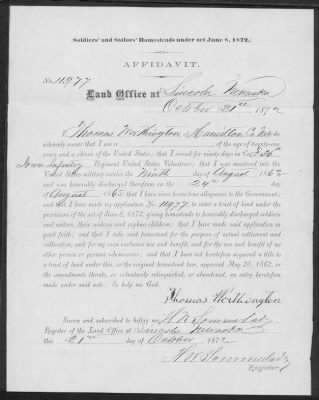 (Soldiers' and Sailors' Homesteads under act June 8, 1872.)
AFFIDAVIT.
No. 11977
Land Office at Lincoln Nebraska
October 21st 1872
I, Thomas Worthington of Hamilton Co Neb do
solemnly swear that I am a of the age of twenty-one
years and a citizen of the United States; that I served for ninety days in Co. 36th
Iowa Infantry Regiment United States Volunteers; that I was mustered into the
United States military service the Ninth day of August 1862
and was honorably discharged therefrom on the 24th day of
August 1865 that I have since borne true allegiance to the Government;
and that I have made my application No. 11977 to enter a tract of land under the
provisions of the act of June 8, 1872, giving homesteads to honorably discharged soldiers
and sailors, their widows and orphan children; that I have made said application in
good faith; and that I take said homestead for the purpose of actual settlement and
cultivation, and for my own exclusive use and benefit, and for the use and benefit of no
other person or persons whomsoever; and that I have not heretofore acquired a title to
a tract of land under this, or the original homestead law, approved May 20, 1862, or
the amendments thereto, or voluntarily relinquished, or abandoned, an entry heretofore
made under said acts: So help me God.
Thomas Worthington
Sworn and subscribed to before me,
Register of the Land Office at Lincoln Nebraska
this 21st day of October 1872
Register